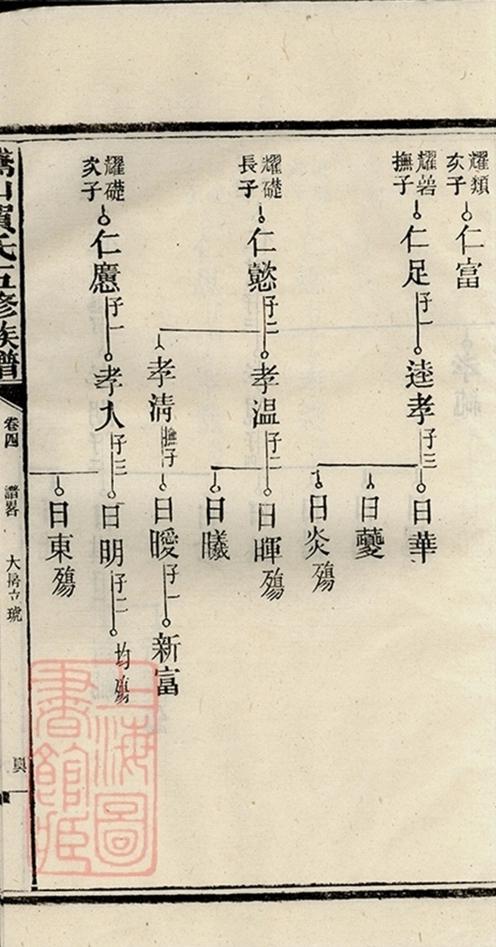 耀類
次子
仁富
耀碞
撫子
仁足
子一
逵孝
子三
日華
日虁
日炎殤
耀礎
長子
仁懿
子二
孝温
子二
日暉殤
日曦
孝清
撫子
日曖
子一
新富
耀礎
次子
仁應
子一
孝大
子三
日明
子二
均殤
日東殤
山賀氏五修族譜
卷四
譜畧
大房立琥
上海圖
書館藏